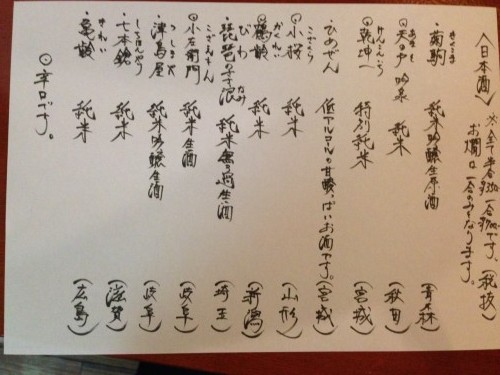 〈日本酒〉
お燗は一合のみとなります。
・菊駒 純米吟醸生原酒 (青森)
きくこま
⊙天の戸 吟泉 純米 (秋田)
あまのと
⊙乾坤一 特別純米 (宮城)
けんこんいち
・ひめぜん 低アルコールの甘酸っぱいお酒です。 (宮城)
・小桜 純米 (山形)
こざくら
⊙鶴齢 純米 (新潟)
かくれい
・琵琶のさざ浪 純米無ろ過生酒 (埼玉)
びわ なみ
⊙小左衛門 純米生酒 (岐阜)
こざえもん
・津島屋 純米吟醸生酒 (岐阜)
つしまや
・七本鎗 純米 (滋賀)
しちほんやり
・亀齢 純米 (広島)
きれい
⊙辛口です。